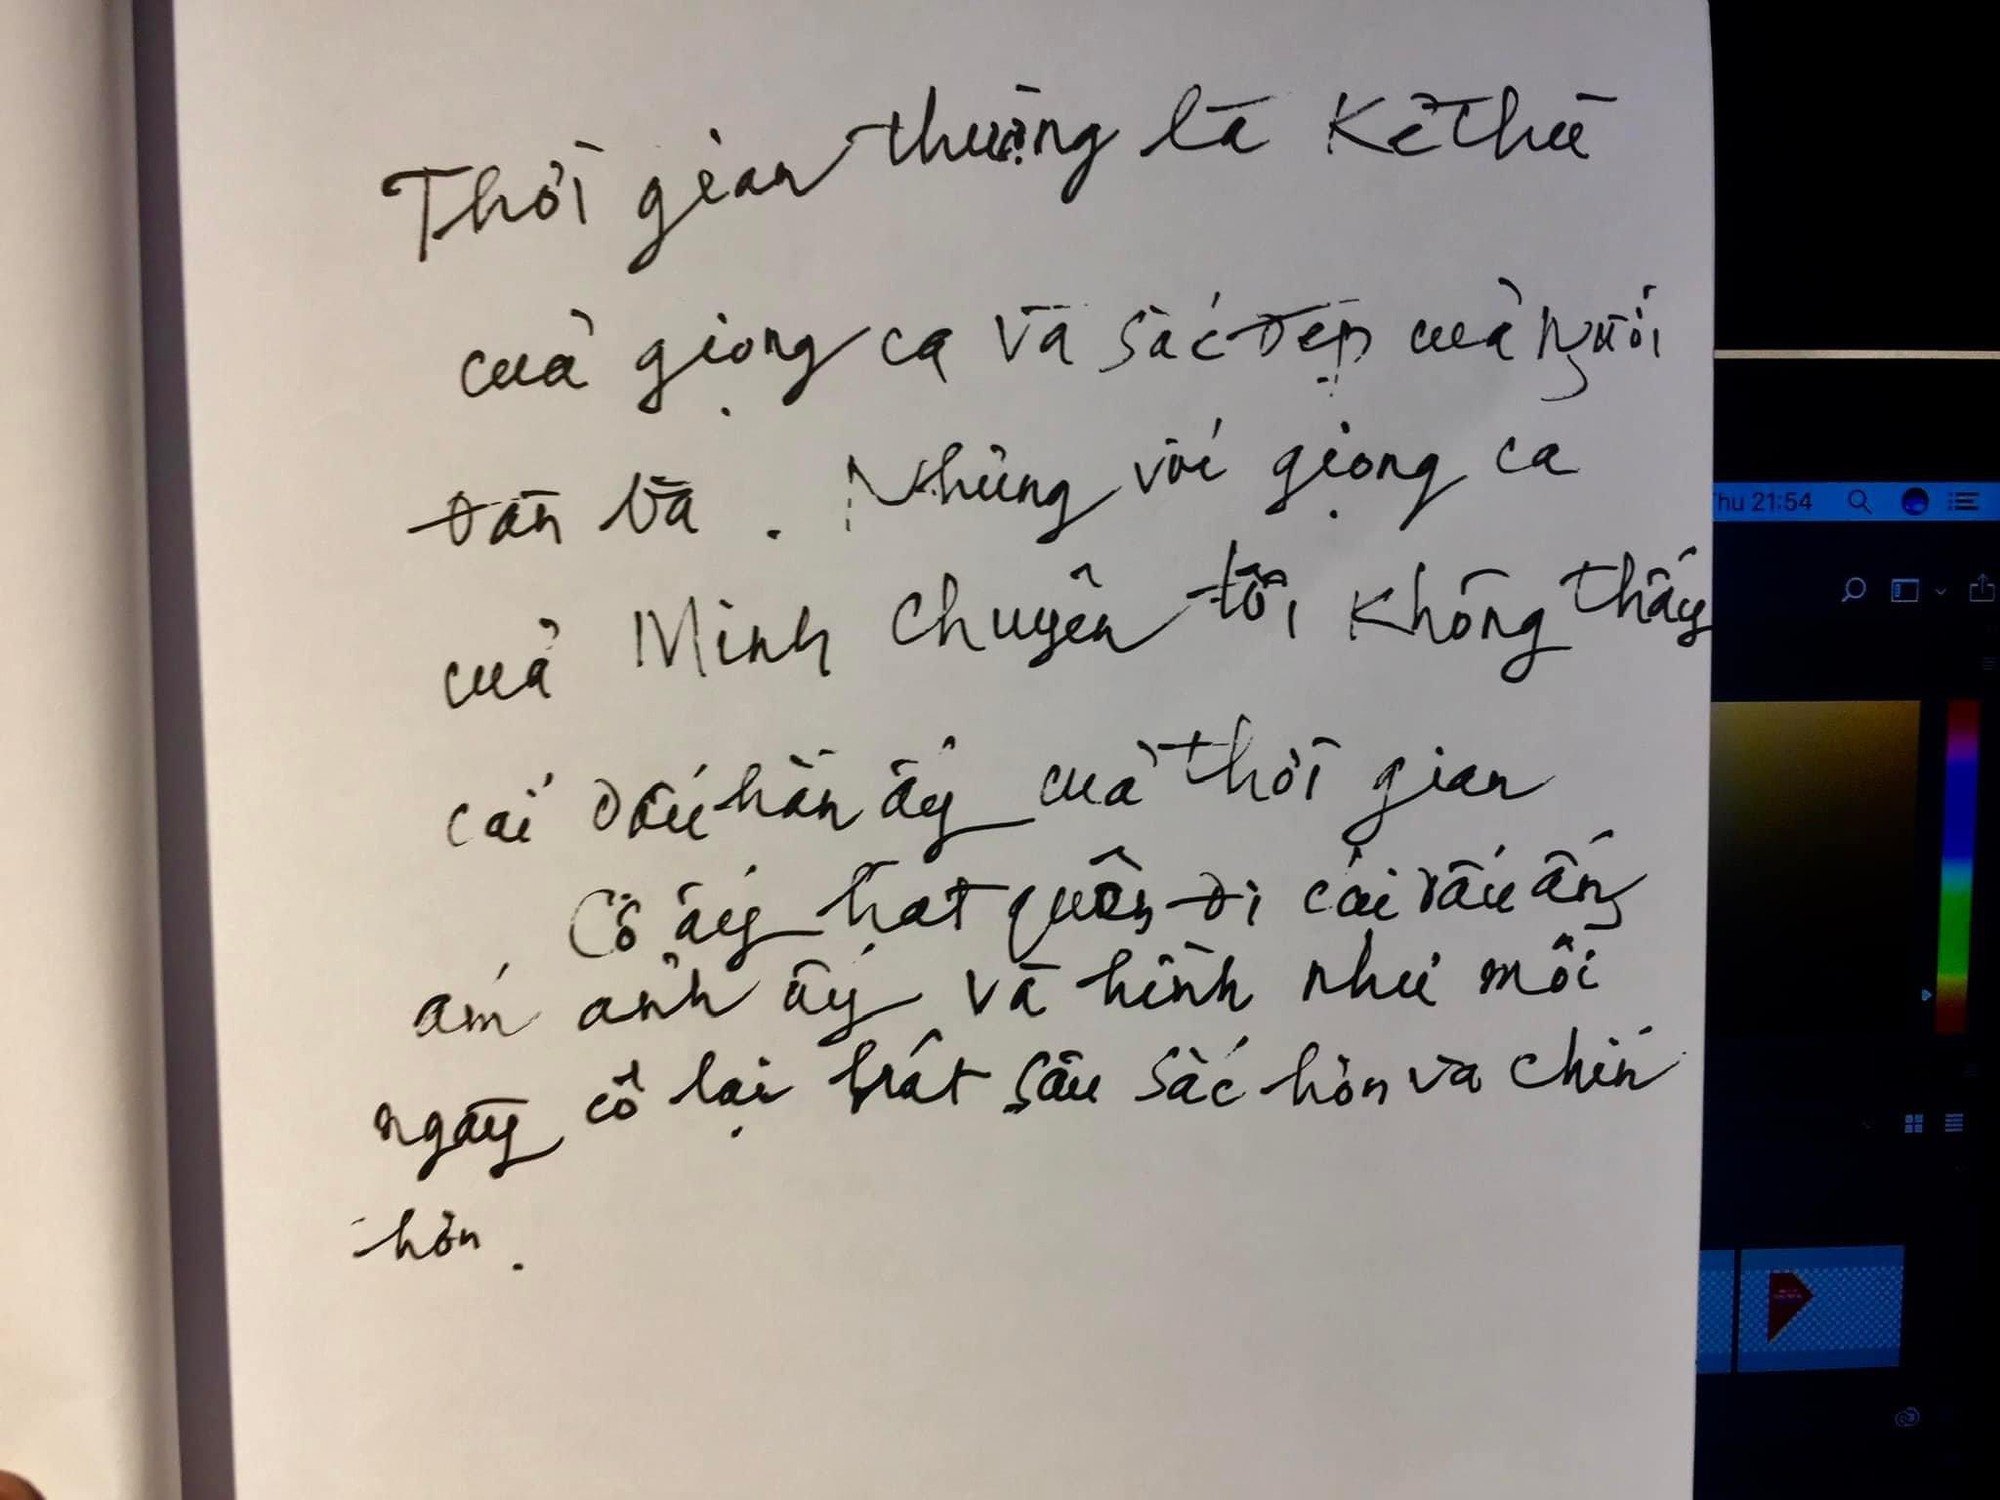 Thời gian thường là Kẻ thù
của giọng ca và sắc đẹp của người
đàn bà. Nhưng với giọng ca
của Minh Chuyên tôi không thấy
cái dấu hằn ấy của thời gian
Cô ấy hát quên đi cái dấu ấn
ám ảnh ấy và hình như mỗi
ngày cô lại hát sâu sắc hơn và chín
hơn.
Thu 21:54